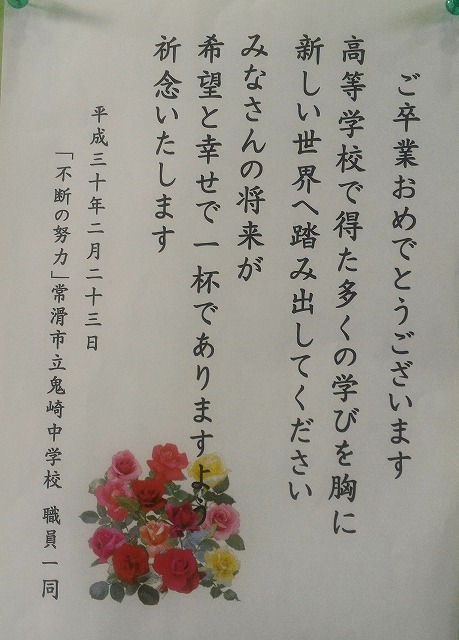 ご卒業おめでとうございます
高等学校で得た多くの学びを胸に
新しい世界へ踏み出してください
みなさんの将来が
希望と幸せで一杯でありますよう
祈念いたします
平成三十年二月二十三日
「不断の努力」常滑市立鬼崎中学校 職員一同